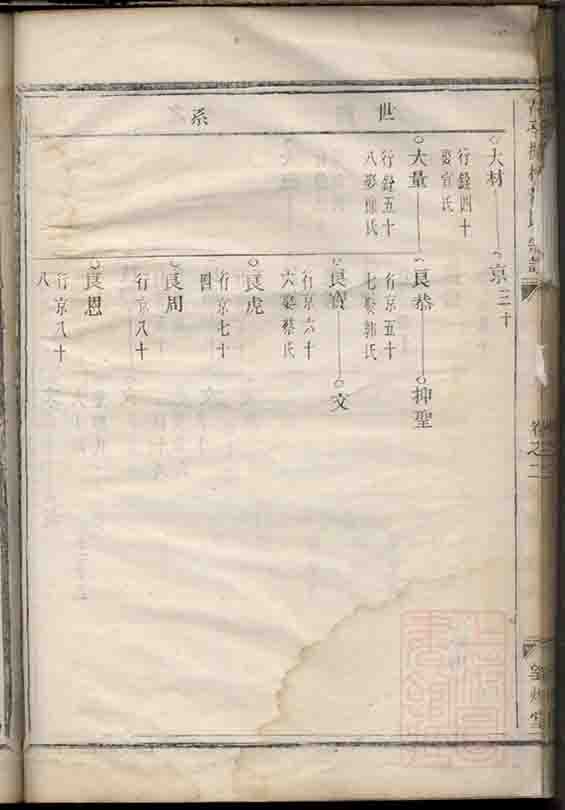 世系
大材
行鐘四十
娶宣氏
京三十
大量
行鐘五十
八娶陳氏
良恭
行京五十
七娶郭氏
抑聖
良寶
行京六十
六娶蔡氏
文
良虎
行京七十
四
良周
行京八十
良思
行京八十
八
卷之二